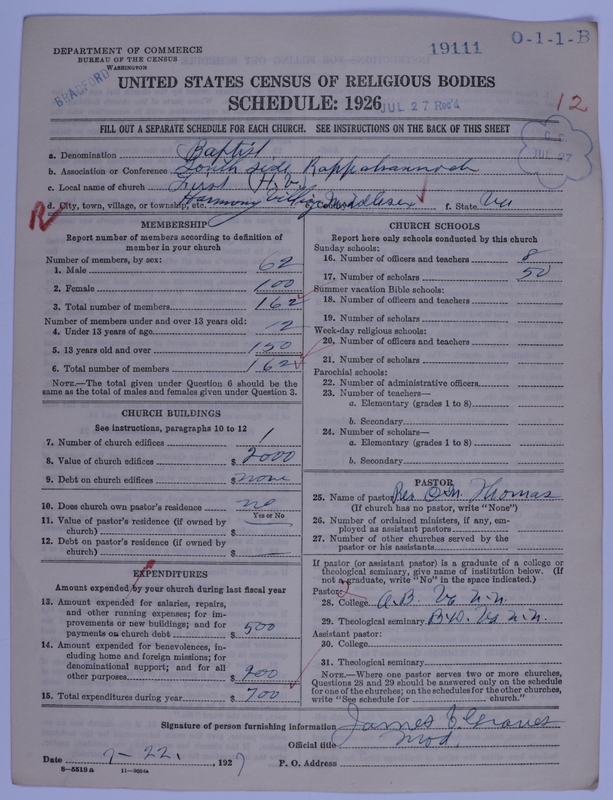 DEPARTMENT OF COMMERCE
BUREAU OF THE CENSUS
WASHINGTON
BRADFORD
19111
O-1-1-B
UNITED STATES CENSUS OF RELIGIOUS BODIES
SCHEDULE: 1926
JUL 27 Rec'd
12
FILL OUT A SEPARATE SCHEDULE FOR EACH CHURCH. SEE INSTRUCTIONS ON THE BACK OF THIS SHEET
JUL 27
a. Denomination Baptist
b. Association or Conference South Side Rappahannock
c. Local name of church First H. V.
R
d. City, town, village, or township, etc. Harmony Village e. County Middlesex f. State Va
MEMBERSHIP
Report number of members according to definition of
member in your church
Number of members, by sex:
1. Male 62
2. Female 100
3. Total number of members 162
Number of members under and over 13 years old:
4. Under 13 years of age 12
5. 13 years old and over 150
6. Total number of members 162
NOTE.—The total given under Question 6 should be the
same as the total of males and females given under Question 3.
CHURCH BUILDINGS
See instructions, paragraphs 10 to 12
7. Number of church edifices 1
8. Value of church edifices $ 2000
9. Debt on church edifices $ none
10. Does church own pastor's residence no
Yes or No
11. Value of pastor's residence (if owned by
church) $
12. Debt on pastor's residence (if owned by
church) $
EXPENDITURES
Amount expended by your church during last fiscal year
13. Amount expended for salaries, repairs,
and other running expenses; for im-
provements or new buildings; and for
payments on church debt $ 500
14. Amount expended for benevolences, in-
cluding home and foreign missions; for
denominational support; and for all
other purposes $ 200
15. Total expenditures during year $ 700
CHURCH SCHOOLS
Report here only schools conducted by this church
Sunday schools:
16. Number of officers and teachers 8
17. Number of scholars 50
Summer vacation Bible schools:
18. Number of officers and teachers
19. Number of scholars
Week-day religious schools:
20. Number of officers and teachers
21. Number of scholars
Parochial schools:
22. Number of administrative officers
23. Number of teachers—
a. Elementary (grades 1 to 8)
b. Secondary
24. Number of scholars—
a. Elementary (grades 1 to 8)
b. Secondary
PASTOR
25. Name of pastor Rev. Thomas
(If church has no pastor, write "None")
26. Number of ordained ministers, if any, em-
ployed as assistant pastors
27. Number of other churches served by the
pastor or his assistants
If pastor (or assistant pastor) is a graduate of a college or
theological seminary, give name of institution below. (If
not a graduate, write "No" in the space indicated.)
Pastor: 2
28. College A.B. Va U.
29. Theological seminary B.D. Va U.
Assistant pastor:
30. College
31. Theological seminary
NOTE.—Where one pastor serves two or more churches,
Questions 28 and 29 should be answered only on the schedule
for one of the churches; on the schedules for the other churches,
write "See schedule for church."
Signature of person furnishing information James Graves
Official title Mod.
Date 7-22, 1927 P. O. Address
8-5519 a 11-9054a